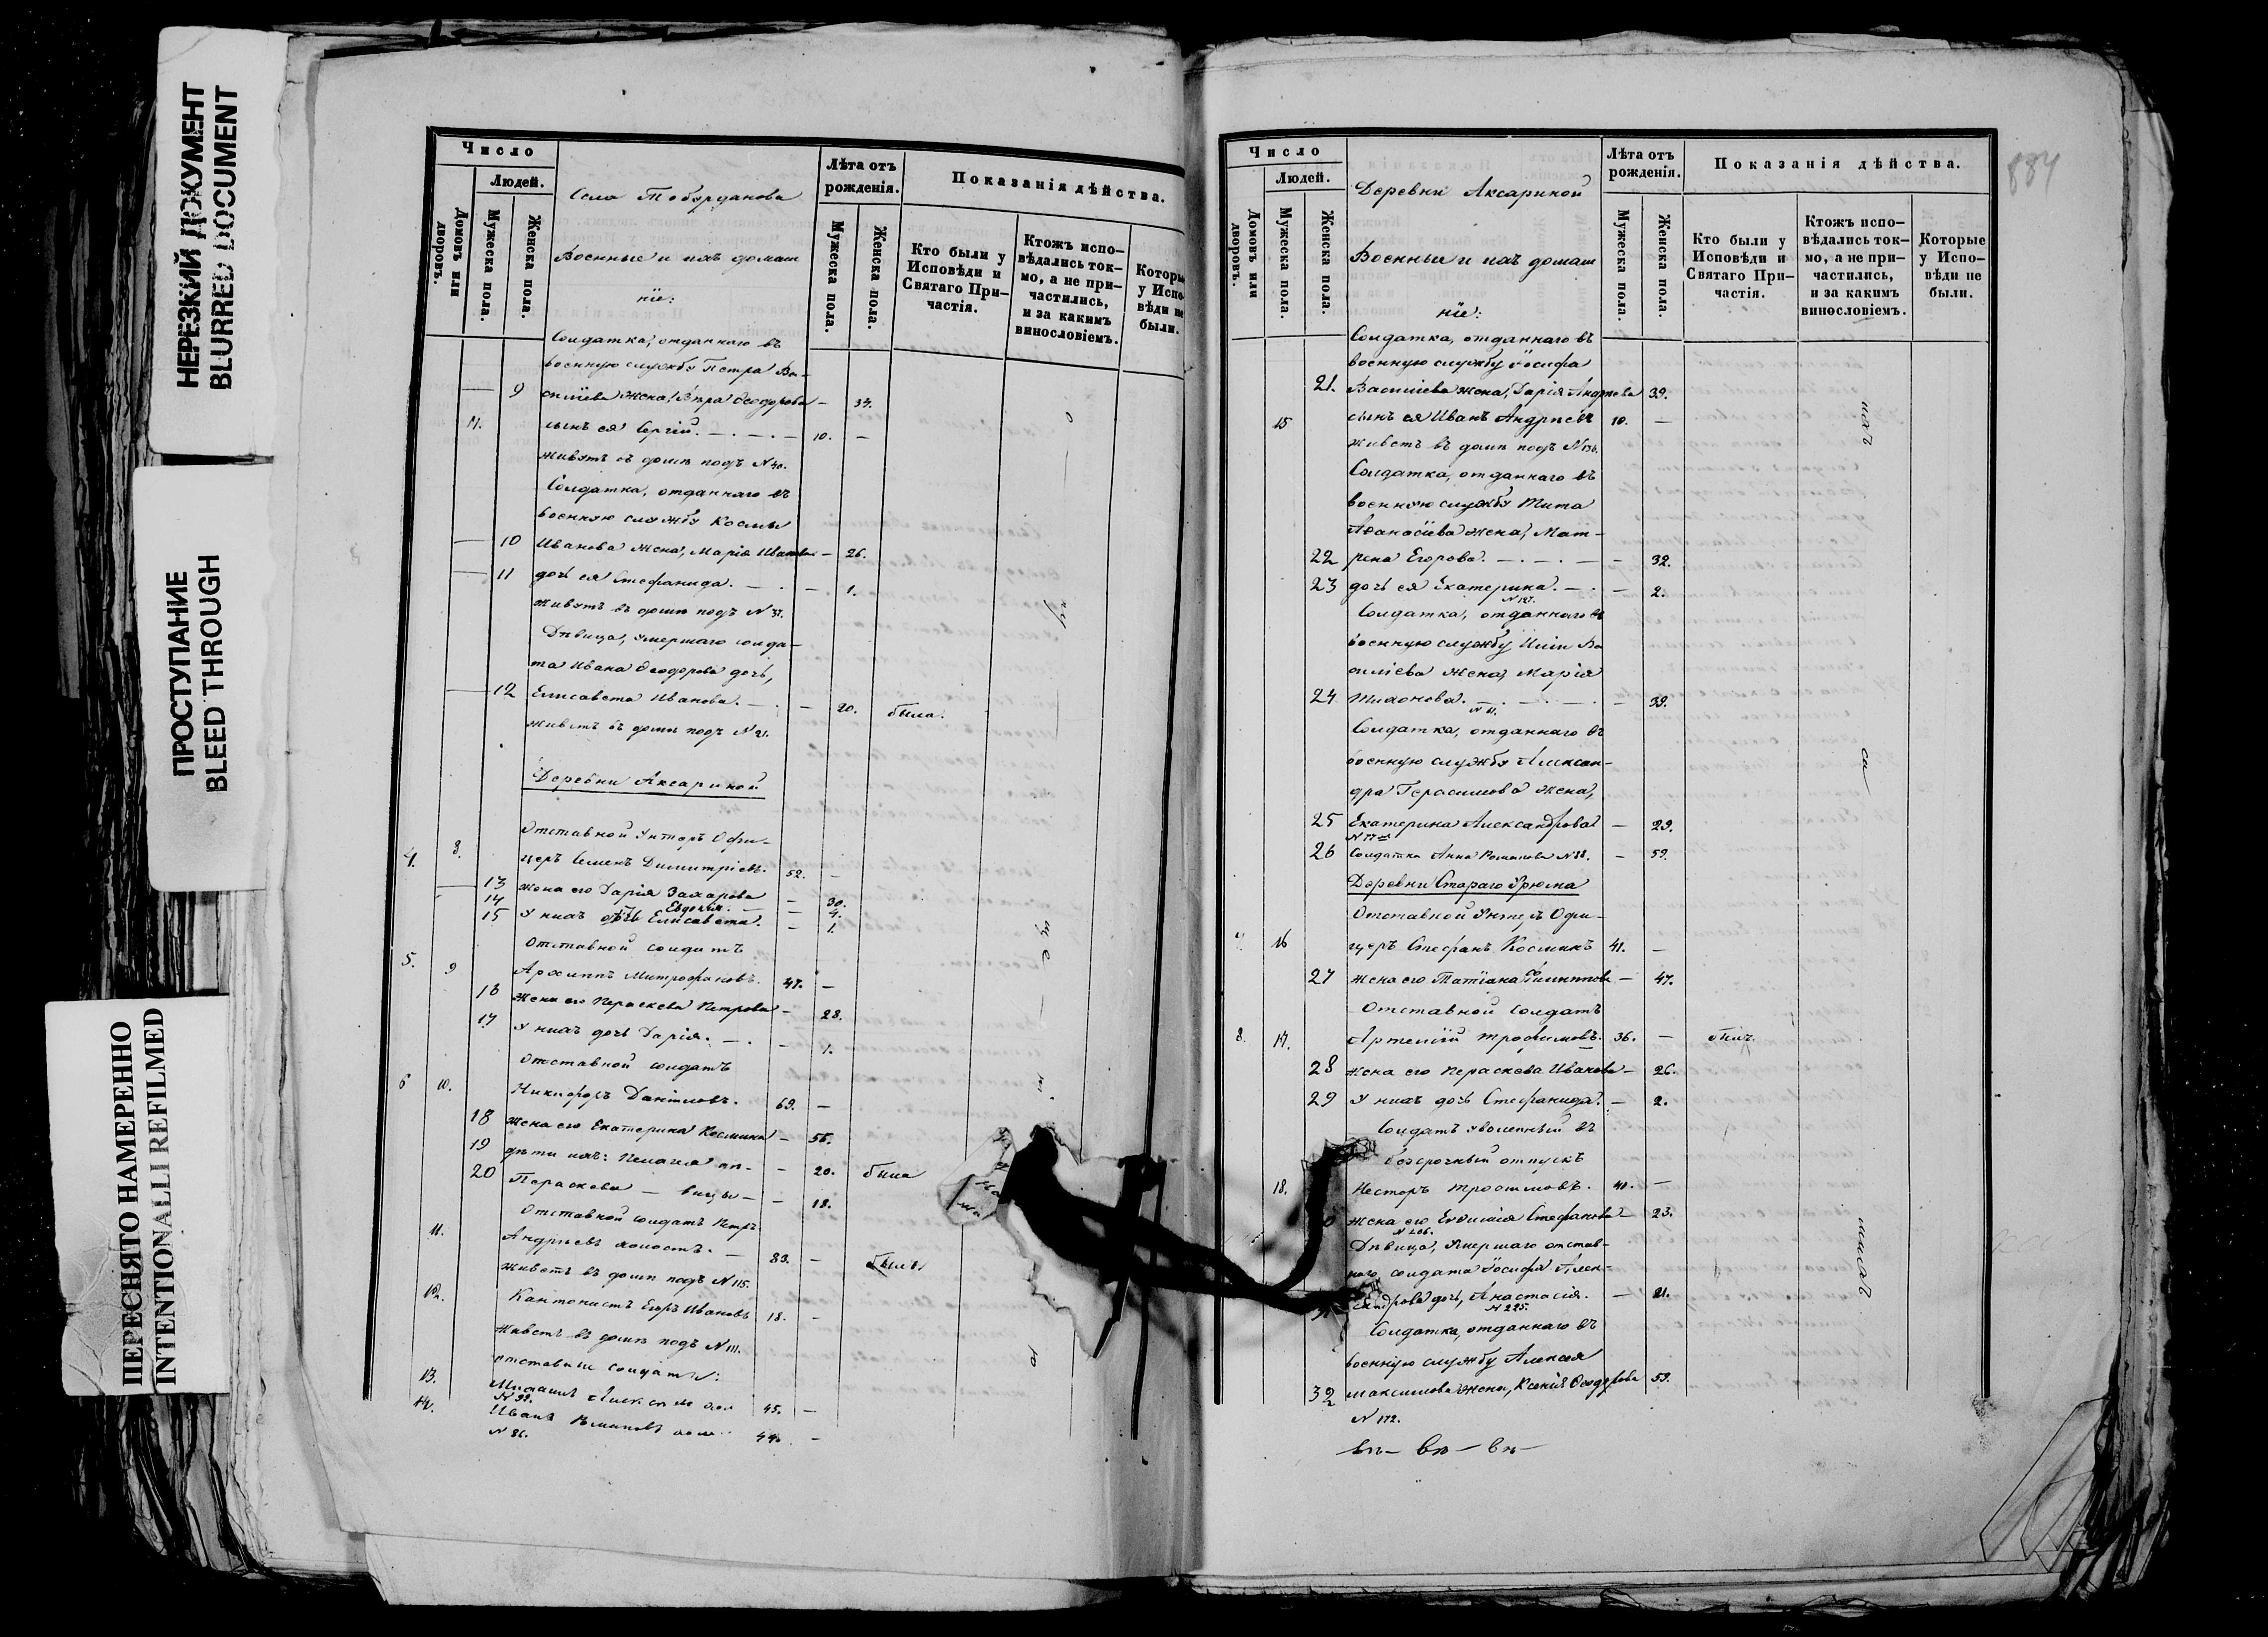 НЕРЕЗКИЙ ДОКУМЕНТ
BLURRED DOCUMENT
ПРОСТУПАНИЕ
BLEED THROUGH
ПЕРЕСНЯТО НАМЕРЕННО
INTENTIONALLI REFILMED
Число
Людей.
Домовъ или дворовъ.
Мужеска пола.
Женска пола.
Села Тобурданова
Военные и ихъ домаш
ніе:
Лѣта отъ рожденія.
Мужеска пола.
Женска пола.
Показанія дѣйства.
Кто были у Исповѣди и Святаго Причастія.
Ктожъ исповѣдались токмо, а не причастились, и за какимъ винословіемъ.
Которые у Исповѣди не были.
Солдатка, отданнаго въ
военную службу Петра Ва-
9 силіева жена, Вѣра Ѳеодорова — 34.
сынъ ея Сергій. — 10. —
живутъ въ домѣ подъ N 40.
Солдатка, отданнаго въ
военную службу Космы
10 Иванова жена, Марія Иванова — 26.
11 дочь ея Стефанида. — 1.
живутъ въ домѣ подъ N 37.
Дѣвица, умершаго солда-
та Ивана Ѳеодорова дочь,
12 Елисавета Иванова. — 20. была.
живетъ въ домѣ подъ N 21.
Деревни Аксариной
Отставной Унтеръ Офи-
4. 8. церъ Семенъ Димитріевъ. 52. —
13 жена его Дарія Захарова — 30.
14 Евдокія. — 4.
15 У нихъ дочь Елисавета. — 1.
Отставной солдатъ
5. 9 Архиппъ Митрофановъ. 47. —
16 жена его Параскева Петрова — 28.
17 У нихъ дочь Дарія. — 1.
Отставной солдатъ
6 10. Никифоръ Даніиловъ. 69. —
18 жена его Екатерина Космина — 56.
19 дѣти ихъ: Пелагія дѣ- — 20. была
20 Параскева — вицы — 18.
Отставной солдатъ Петръ
11. Андреевъ холостъ. — 83. — былъ
живетъ въ домѣ подъ N 115.
12. Кантонистъ Егоръ Ивановъ 18. —
живетъ въ домѣ подъ N 111.
отставные солдаты:
13. Михаилъ 45. —
N 98.
14. Иванъ 44. —
N 86.
884
Число
Людей.
Домовъ или дворовъ.
Мужеска пола.
Женска пола.
Деревни Аксариной
Военные и ихъ домаш
ніе:
Лѣта отъ рожденія.
Мужеска пола.
Женска пола.
Показанія дѣйства.
Кто были у Исповѣди и Святаго Причастія.
Ктожъ исповѣдались токмо, а не причастились, и за какимъ винословіемъ.
Которые у Исповѣди не были.
Солдатка, отданнаго въ
военную службу Іосифа
21. Василіева жена, Дарія Андреева 39.
15 сынъ ея Иванъ Андреевъ 10. —
живетъ въ домѣ подъ N 136.
Солдатка, отданнаго въ
военную службу Тита
Аѳанасіева жена, Мат-
22 рена Егорова. — 32.
23 дочь ея Екатерина. — 2.
N 127.
Солдатка, отданнаго въ
военную службу Иліи Ва
силіева жена, Марія
24 Тихонова. — 39.
N 81.
Солдатка, отданнаго въ
военную службу Алексан-
дра Герасимова жена,
25 Екатерина Александрова — 29.
N 77
26 Солдатка Анна Романова N 88. — 59.
Деревни Стараго Урюма
Отставной Унтеръ Офи-
16 церъ Стефанъ Косминъ 41. —
27 жена его Татіана Филиппова — 47.
Отставной Солдатъ
8. 17. Артемій Трофимовъ. 36. — былъ.
28 жена его Параскева Иванова — 26.
29 У нихъ дочь Стефанида. — 2.
Солдатъ уволенный въ
безсрочный отпускъ
18. Несторъ 41. —
жена его Евфимія Стефанова — 23.
N 206.
Дѣвица, умершаго отстав-
наго солдата Іосифа Алек-
сандрова дочь, Анастасія. — 21.
N 225.
Солдатка, отданнаго въ
военную службу Алексія
32 Максимова жена, Ксенія Ѳеодорова 59.
N 172.